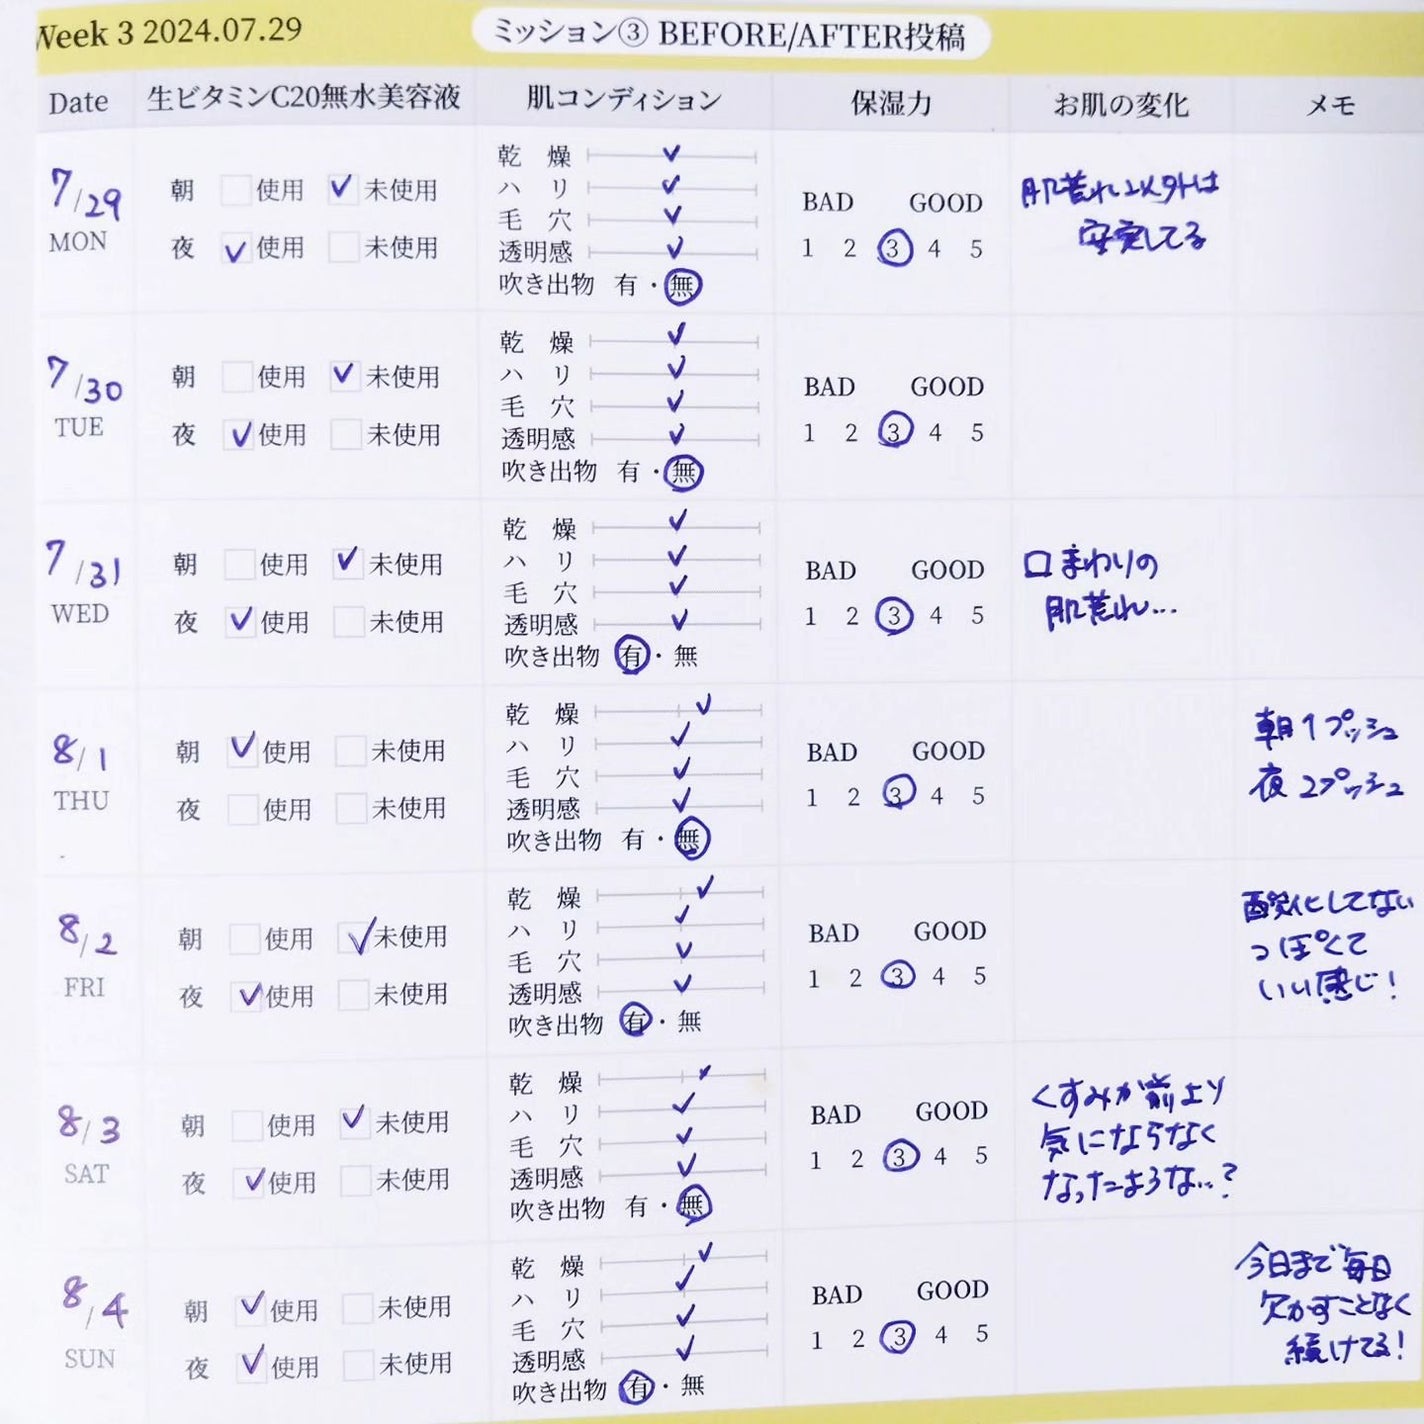 Week 3 2024.07.29
ミッション③ BEFORE/AFTER投稿
Date 生ビタミンC20無水美容液 肌コンディション 保湿力 お肌の変化 メモ
7/29
MON
朝 使用 未使用
夜 使用 未使用
乾 燥
ハ リ
毛 穴
透明感
吹き出物 有・無
BAD GOOD
1 2 3 4 5
肌荒れ以外は
安定してる
7/30
TUE
朝 使用 未使用
夜 使用 未使用
乾 燥
ハ リ
毛 穴
透明感
吹き出物 有・無
BAD GOOD
1 2 3 4 5
7/31
WED
朝 使用 未使用
夜 使用 未使用
乾 燥
ハ リ
毛 穴
透明感
吹き出物 有・無
BAD GOOD
1 2 3 4 5
口まわりの
肌荒れ…
8/1
THU
朝 使用 未使用
夜 使用 未使用
乾 燥
ハ リ
毛 穴
透明感
吹き出物 有・無
BAD GOOD
1 2 3 4 5
朝1プッシュ
夜2プッシュ
8/2
FRI
朝 使用 未使用
夜 使用 未使用
乾 燥
ハ リ
毛 穴
透明感
吹き出物 有・無
BAD GOOD
1 2 3 4 5
酸化してない
っぽくて
いい感じ!
8/3
SAT
朝 使用 未使用
夜 使用 未使用
乾 燥
ハ リ
毛 穴
透明感
吹き出物 有・無
BAD GOOD
1 2 3 4 5
くすみが前より
気にならなく
なったような..?
8/4
SUN
朝 使用 未使用
夜 使用 未使用
乾 燥
ハ リ
毛 穴
透明感
吹き出物 有・無
BAD GOOD
1 2 3 4 5
今日まで毎日
欠かすことなく
続けてる!